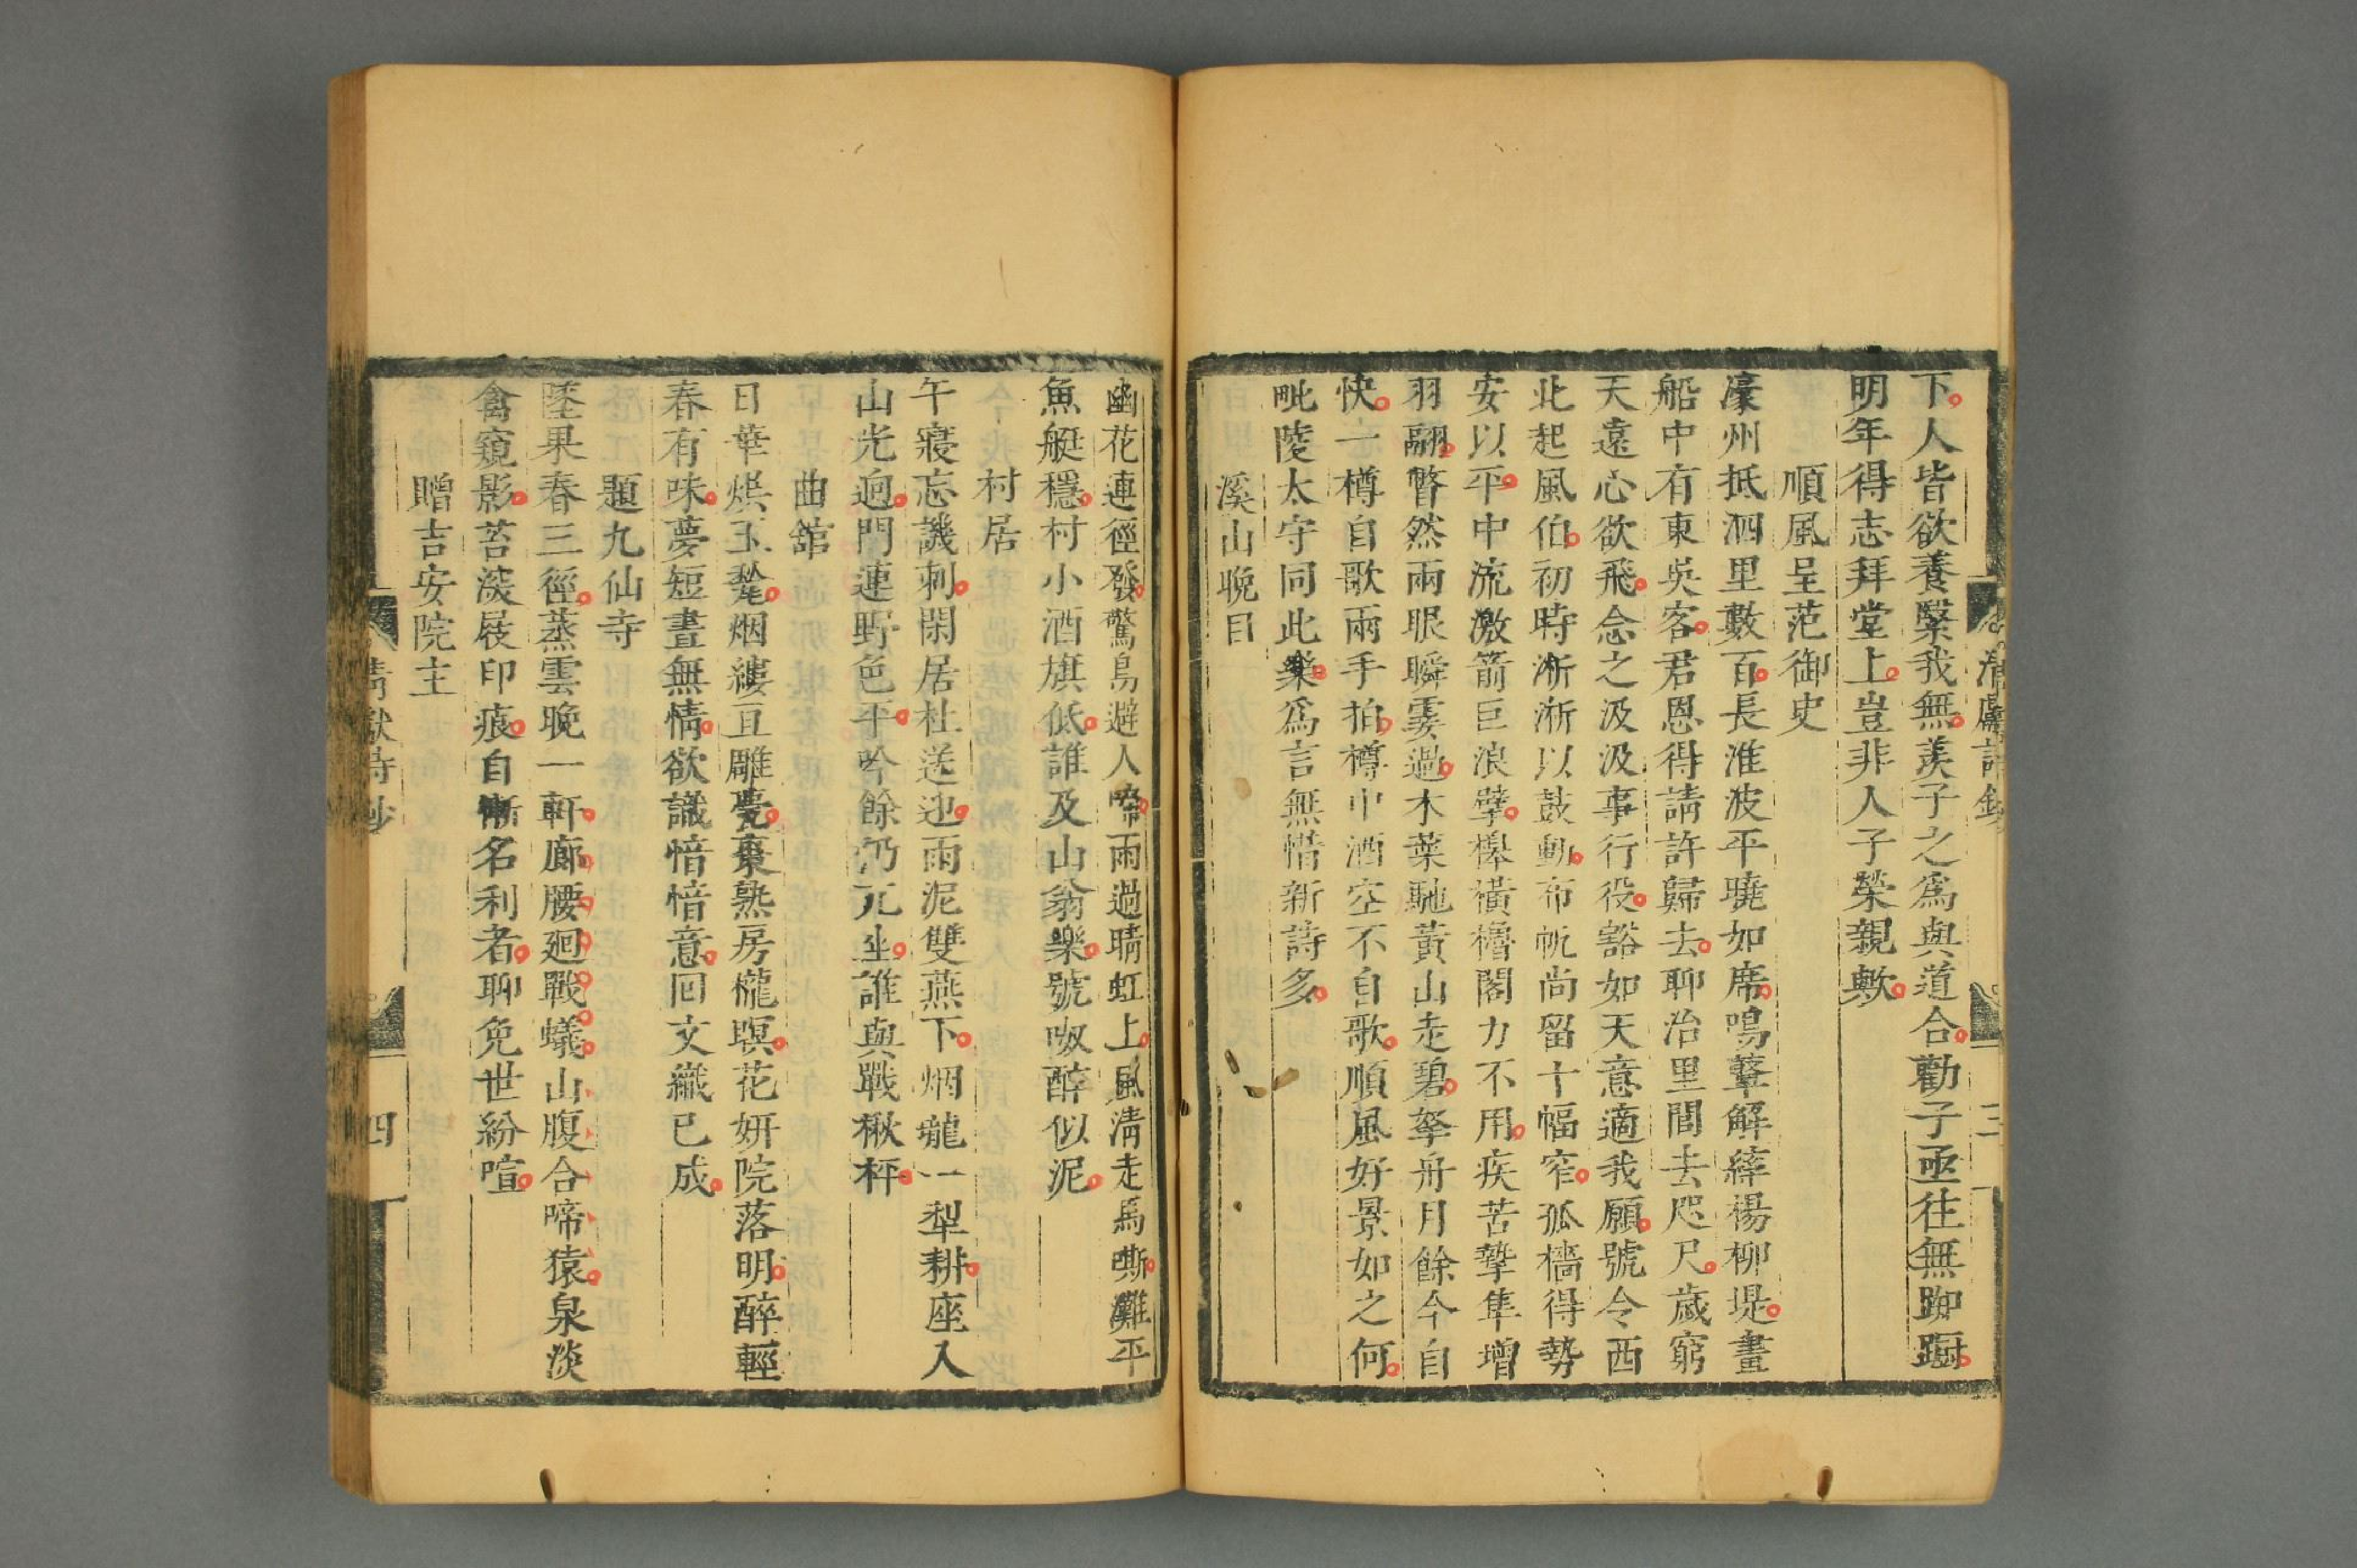 下人皆欲養繄我無羨子之爲與道合勸子亟往無踟蹰
明年得志拜堂上豈非人子榮親歟
順風呈范御史
濠州抵泗里數百長淮波平曉如席鳴鼙解繂楊柳堤畫
船中有東吳客君恩得請許歸去聊治里閭去咫尺歲窮
天遠心欲飛念之汲汲事行役豁如天意適我願號令西
北起風伯初時淅淅以鼓動布帆尚留十幅窄孤檣得勢
安以平中流激箭巨浪擘櫸橫櫓閣力不用疾苦摯隼增
羽翮瞥然兩眼瞬霎過木葉馳黃山走碧拏舟月餘今自
快一樽自歌兩手拍樽中酒空不自歌順風好景如之何
毗陵太守同此樂爲言無惜新詩多
溪山晚目
清獻詩鈔
三
幽花連徑發驚鳥避人啼雨過晴虹上風淸走馬嘶灘平
魚艇穩村小酒旗低誰及山翁樂號呶醉似泥
村居
午寢忘譏刺閑居杜送迎雨泥雙燕下烟壠一犁耕座入
山光迥門連野色平吟餘仍兀坐誰與戰楸枰
曲舘
日華烘玉甃烟縷亘雕甍棗熟房櫳暝花妍院落明醉輕
春有味夢短晝無情欲識愔愔意回文織已成
題九仙寺
墜果春三徑蒸雲晚一軒廊腰廻戰蟻山腹合啼猿泉淡
禽窺影苔淡屐印痕自慚名利者聊免世紛喧
贈吉安院主
清獻詩鈔
四